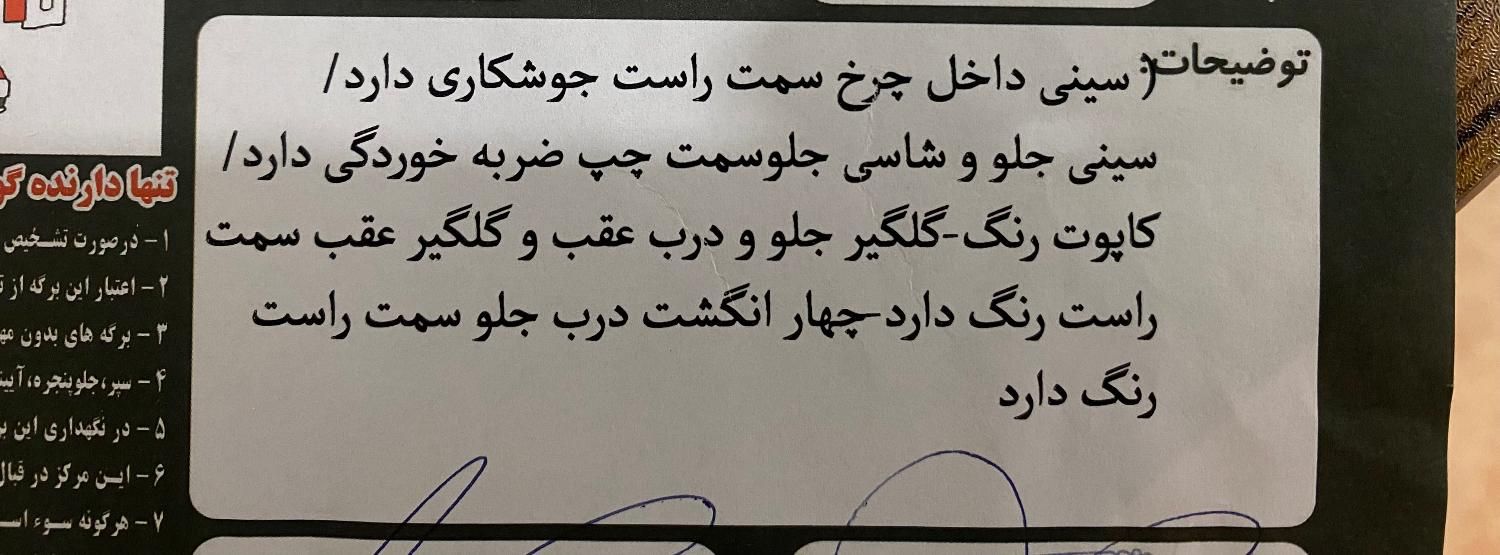 توضیحات:
) سینی داخل چرخ سمت راست جوشکاری دارد/
سینی جلو و شاسی جلوسمت چپ ضربه خوردگی دارد/
کاپوت رنگ-گلگیر جلو و درب عقب و گلگیر عقب سمت
راست رنگ دارد-چهار انگشت درب جلو سمت راست
رنگ دارد
تنها دارنده
۱- درصورت تشخیص
۲- اعتبار این برگه از
۳- برگه های بدون
۴- سپر،جلوپنجره،
۵- در نگهداری این
۶- این مرکز در قبال
۷- هرگونه سوء